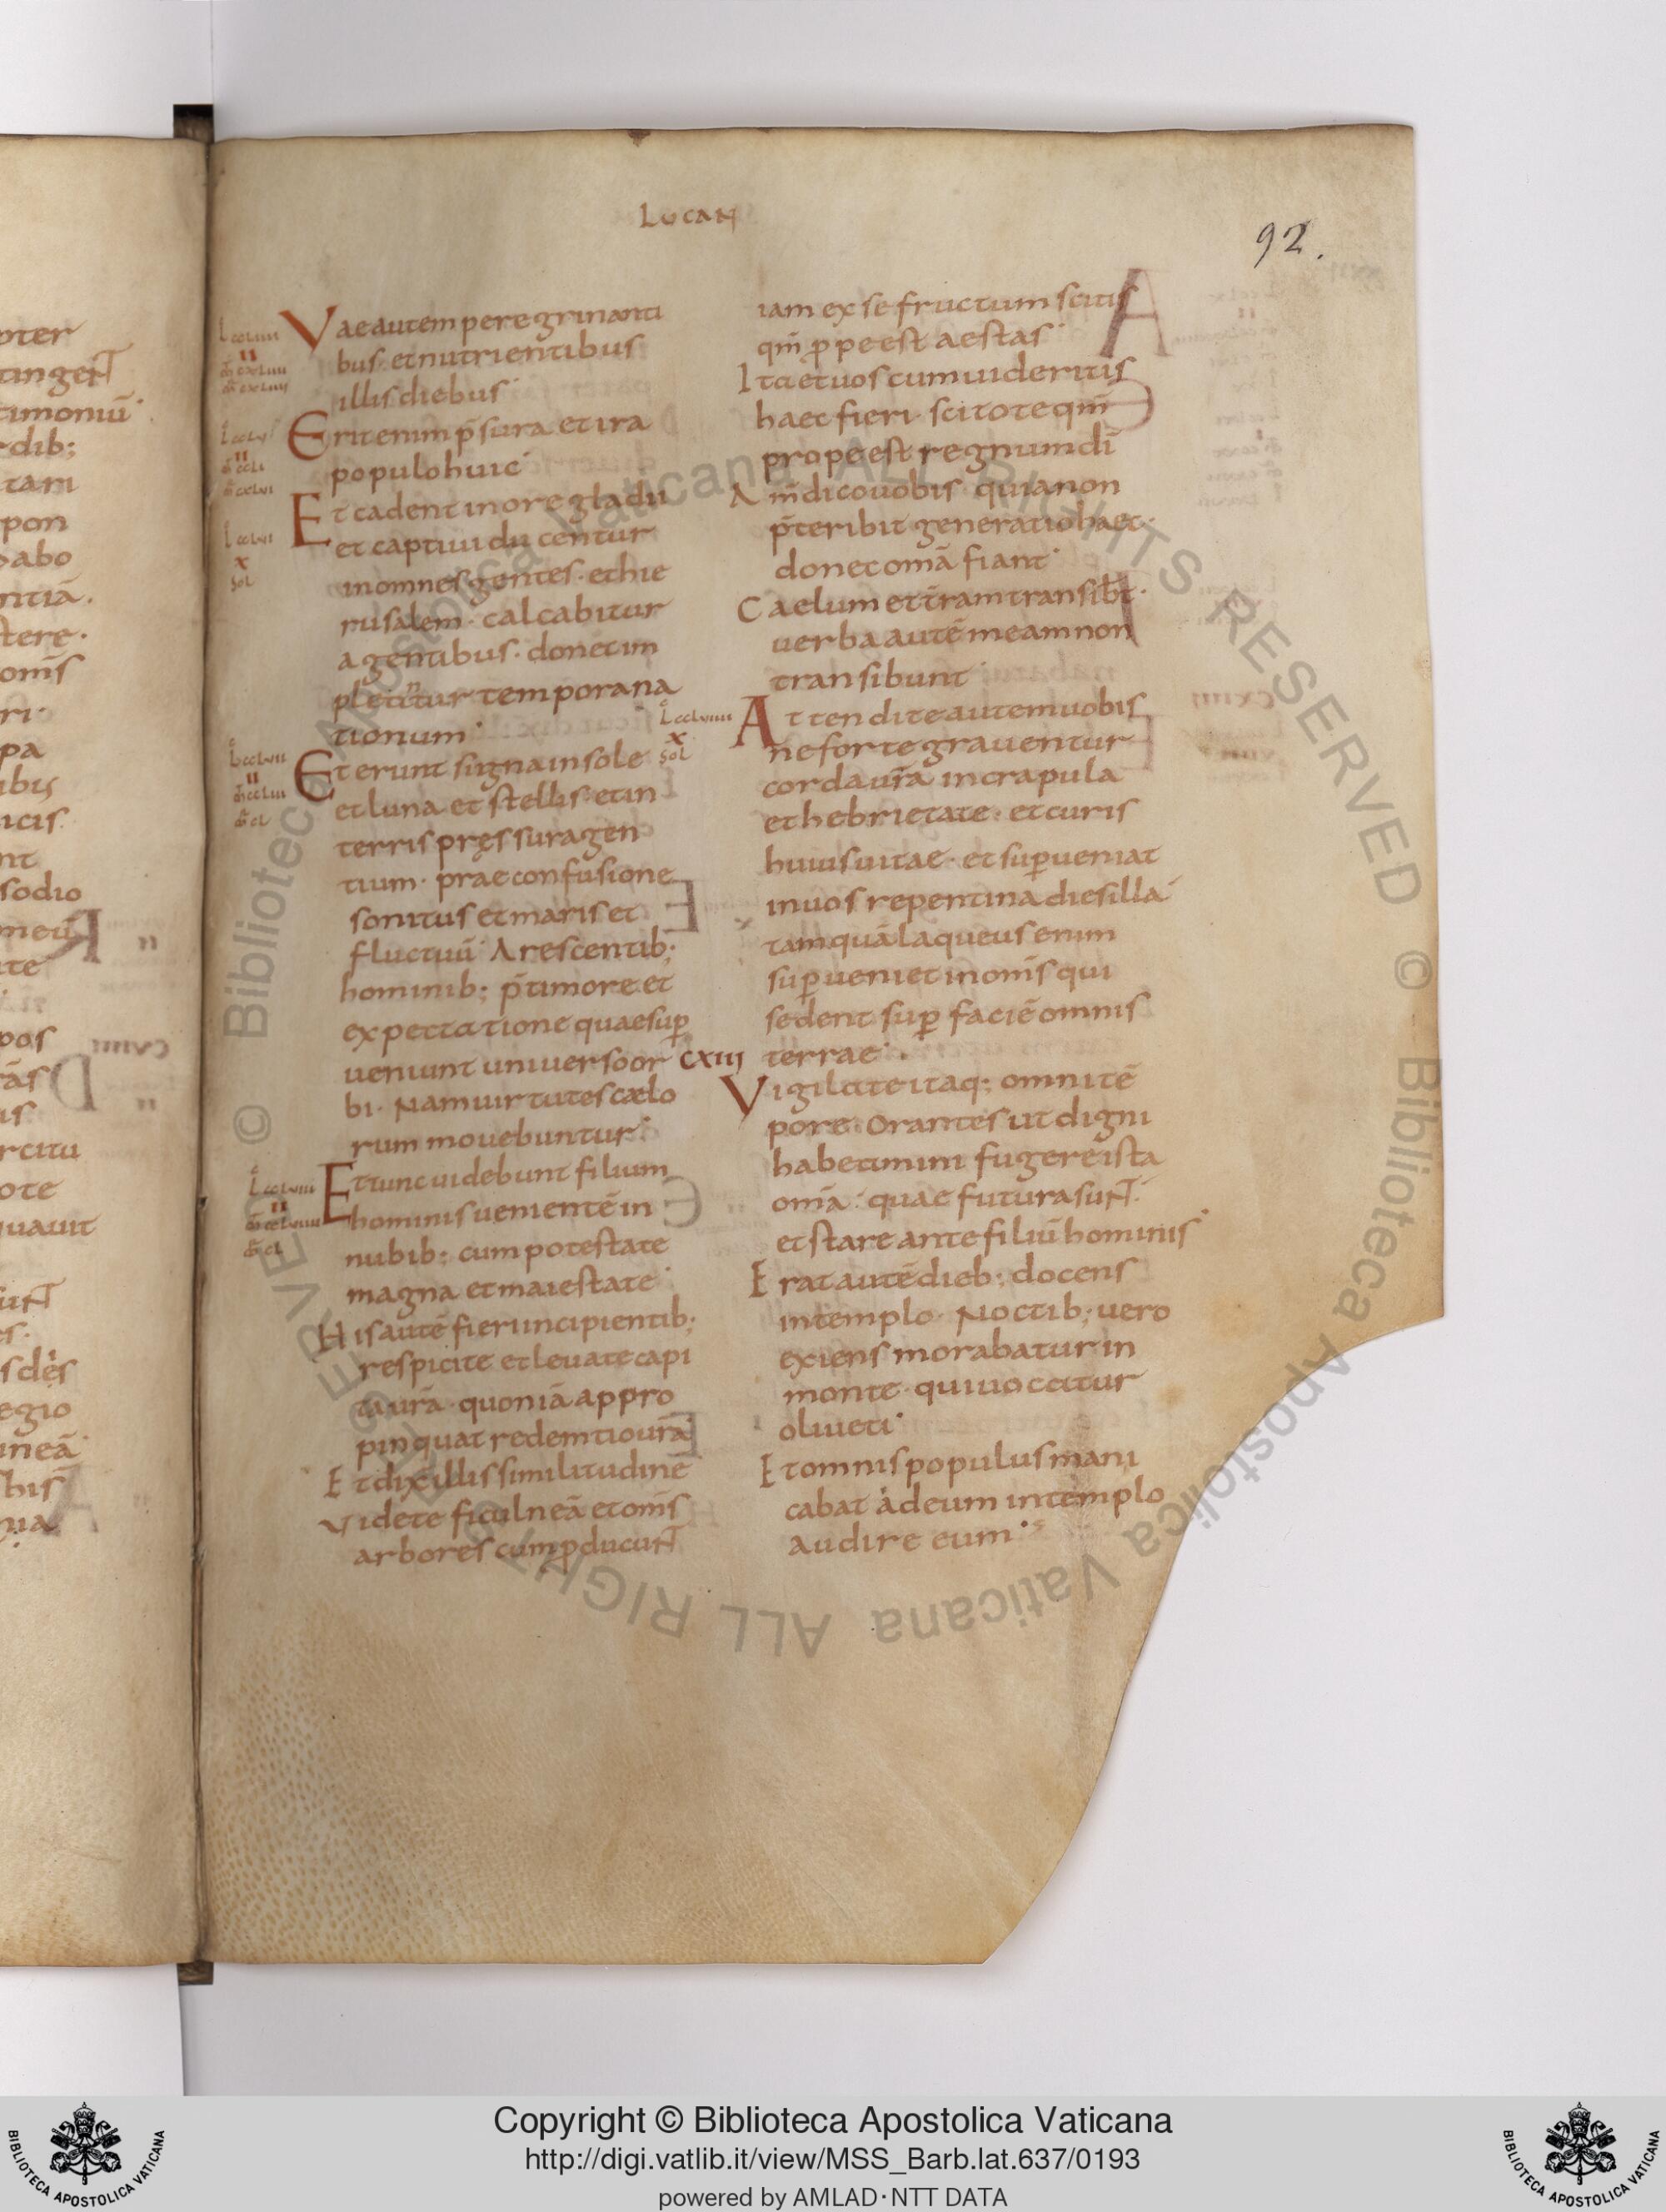 Lucan
92.
Vae autem peregrinanti
bus· et nutrientibus
illis diebus·
Erit enim p̄sura et ira
populo huic·
Et cadent in ore gladii
et captiui ducentur
in omnes gentes· et hie
rusalem· calcabitur
a gentibus· donec im
pletentur tempora na
tionum·
Et erunt signa in sole
et luna et stellis· et in
terris pręssura gen
tium· prae confusione
sonitus et maris et
fluctuū· Arescentib;
hominib; p̄timore et
expectatione quae sup̱
ueniunt uniuerso or
bi· Nam uirtutes cælo
rum mouebuntur·
Et tunc uidebunt filium
hominis uenientē in
nubib; cum potestate
magna et maiestate·
His autē fieri incipientib;
respicite et leuate capi
ta ur̄a· quoniā appro
pinquat redemtio ur̄a·
Et dix̄ illis similitudinē
Videte ficulneā et om̄s
arbores cum ꝓducuNT
iam ex se fructum scitis
qm̄ ꝓpe est aestas·
Ita et uos cum uideritis
haec fieri· scitote qm̄
prope est regnum dī
Am̄ dico uobis· quia non
p̄teribit generatio haec·
donec om̄a fiant·
Caelum et t̄ram transib̄t·
uerba autē meam non
transibunt·
Attendite autem uobis
ne forte grauentur
corda ur̄a in crapula
et hebrietate· et curis
huius uitae· et sup̱ueniat
in uos repentina dies illa
tamquā laqueus enim
sup̱ueniet in om̄s qui
sedent sup̱ faciē omnis
terrae·
CXIII
Vigilate itaq; omni tē
pore· Orantes ut digni
habeamini fugere ista
om̄a· quae futura suNT·
et stare ante filiū hominis·
Erat autē dieb; docens
in templo· Noctib; uero
exiens morabatur in
monte· qui uocatur
oliueti·
Et omnis populus mani
cabat ad eum in templo
audire eum·
© Biblioteca Apostolica Vaticana ALL RIGHTS RESERVED
© Biblioteca Apostolica Vaticana ALL RIGHTS RESERVED
BIBLIOTECA APOSTOLICA VATICANA
Copyright © Biblioteca Apostolica Vaticana
http://digi.vatlib.it/view/MSS_Barb.lat.637/0193
powered by AMLAD·NTT DATA
BIBLIOTECA APOSTOLICA VATICANA